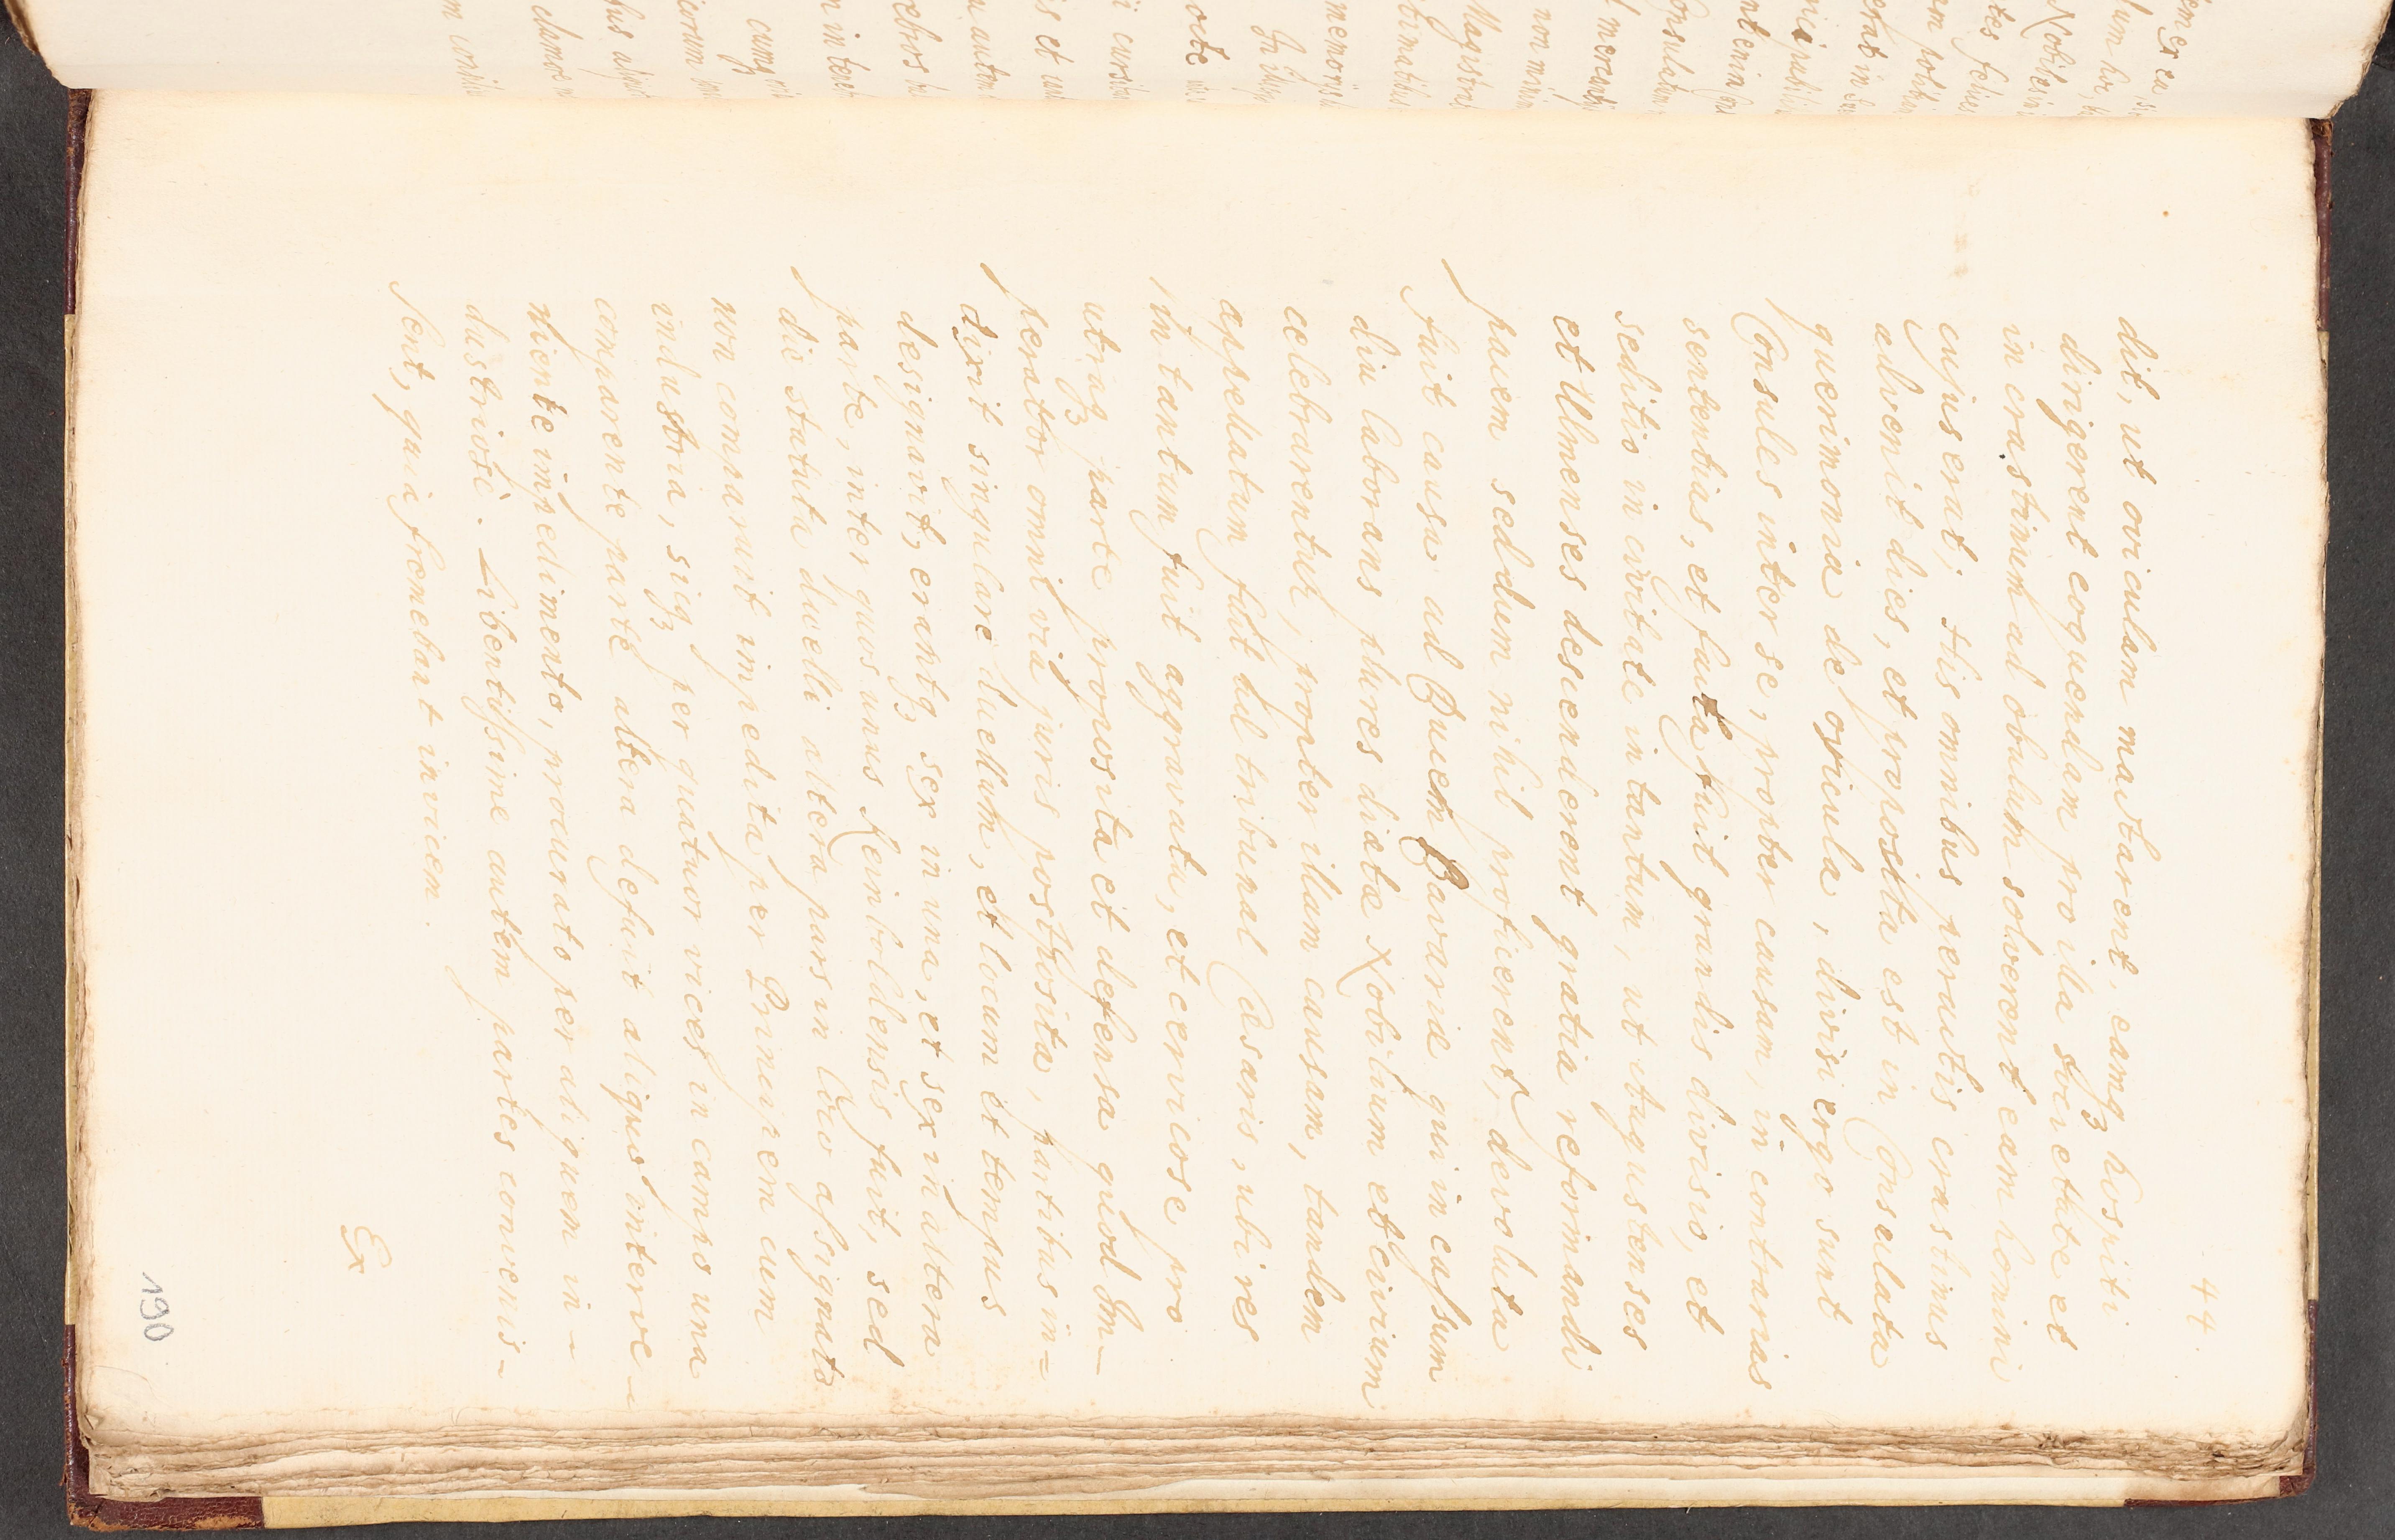 44.
dit, ut oviculam mactarent, eamq3 hospiti
dirigerent coquendam pro illa societate et
in crastinum ad obulum solverent eam homini
cujus erat; His omnibus peractis crastinus
advenit dies, et proposita est in Consulata
querimonia de ovicula, divisi ergo sunt
Consules inter se, propter causam, in contrarias
sententias, et facta fuit grandis divisio, et
seditio in civitate in tantum, ut Augustenses
et Ulmenses descenderent gratia reformandi
pacem sed dum nihil proficerent, devoluta
fuit causa ad Ducem Bavariae qui in caſsum
diu laborans plures diaetae Nobilium et civium
celebrarentur, propter illam causam, tandem
appellatum fuit ad tribunal Caesaris, ubi res
in tantum fuit aggravata, et cervicose pro
utraq3 parte proposita et defensa quod Im-
perator omni via juris posthosita, partibus in=
dixit singulare duellum, et locum et tempus
designavit, erantq3 sex in una, et sex in altera
parte, inter quos unus Reinboldensis fuit, sed
die statuta duelli altera pars in loco aſsignato
non comparuit impedita per Principem cum
industria, sicq3 per quatuor vices in campo una
comparente parte altera defuit aliquo interve-
niente impedimento, procurato per aliquem in-
dustriosè. Libentiſsime autem partes convenis-
sent, quia fremebant invicem.
Ex
190